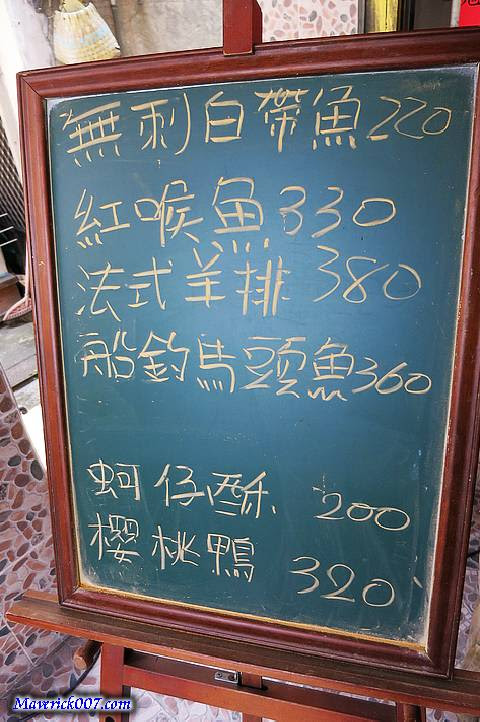 無刺白帶魚220
紅喉魚330
法式羊排 380
船釣馬頭魚360
蚵仔酥 200
櫻桃鴨 320
Maverick007.com